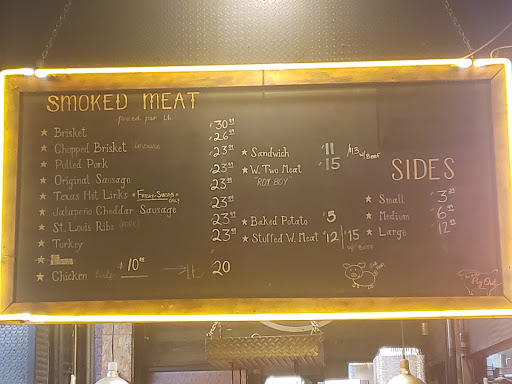 SMOKED MEAT
priced per lb
★ Brisket 30
★ Chopped Brisket 26
★ Pulled Pork 23
★ Original Sausage 23
★ Texas Hot Links ★ FRIDAY-SUNDAY ★ ONLY 23
★ Jalapeño Cheddar Sausage 23
★ St. Louis Ribs (PORK) 23
★ Turkey 23
★ Chicken half $10 → lb 20
★ Sandwich $11 /$13 w/ BEEF
★ W. Two Meat $15
"ROY BOY"
★ Baked Potato $5
★ Stuffed W. Meat $12 $15
w/ BEEF
SIDES
★ Small 3
★ Medium 6
★ Large 12
Pig Out